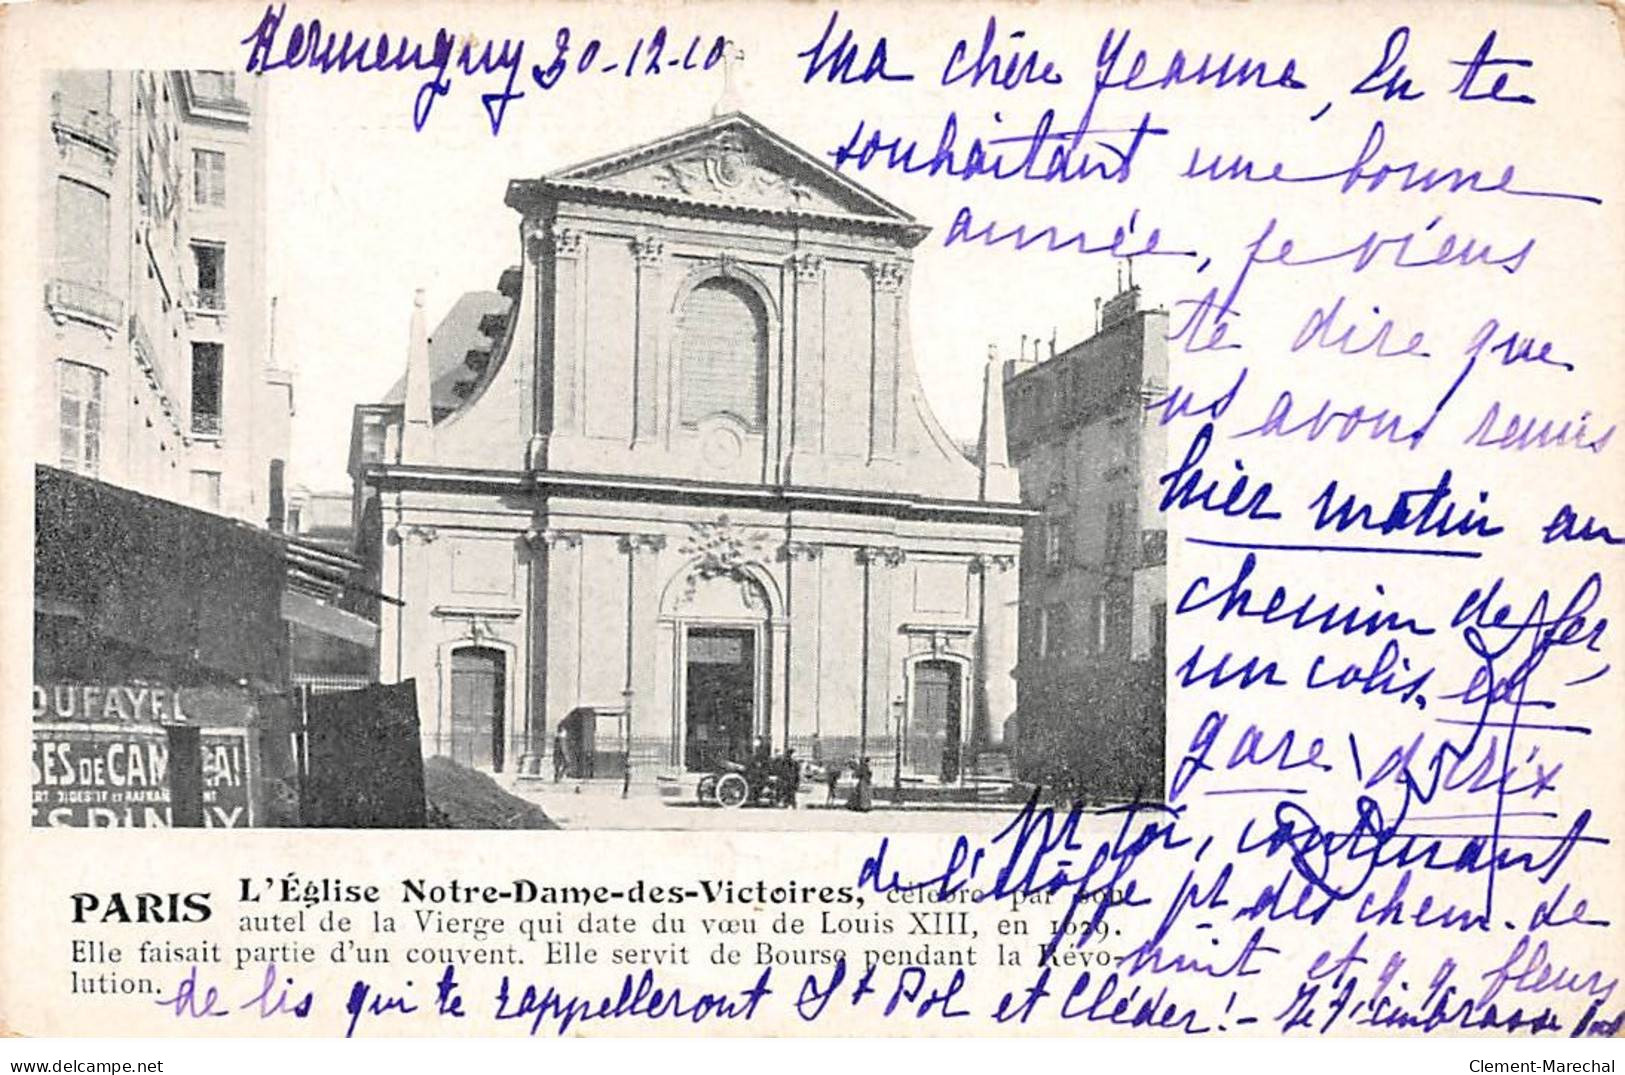 Kermenguy 30-12-10
Ma chère Jeanne, En te
souhaitant une bonne
année, je viens
te dire que
ns avons remis
hier matin au
chemin de fer,
un colis, en
gare,
pr toi, contenant
de l'étoffe pr des chem. de
nuit et q q fleurs
de lis qui te rappelleront St Pol et Cléder! - Je t'embrasse
PARIS L'Église Notre-Dame-des-Victoires, célèbre par son
autel de la Vierge qui date du vœu de Louis XIII, en 1629.
Elle faisait partie d'un couvent. Elle servit de Bourse pendant la Révo-
lution.
DUFAYEL
SES DE CAM
delcampe.net
Clement-Marechal